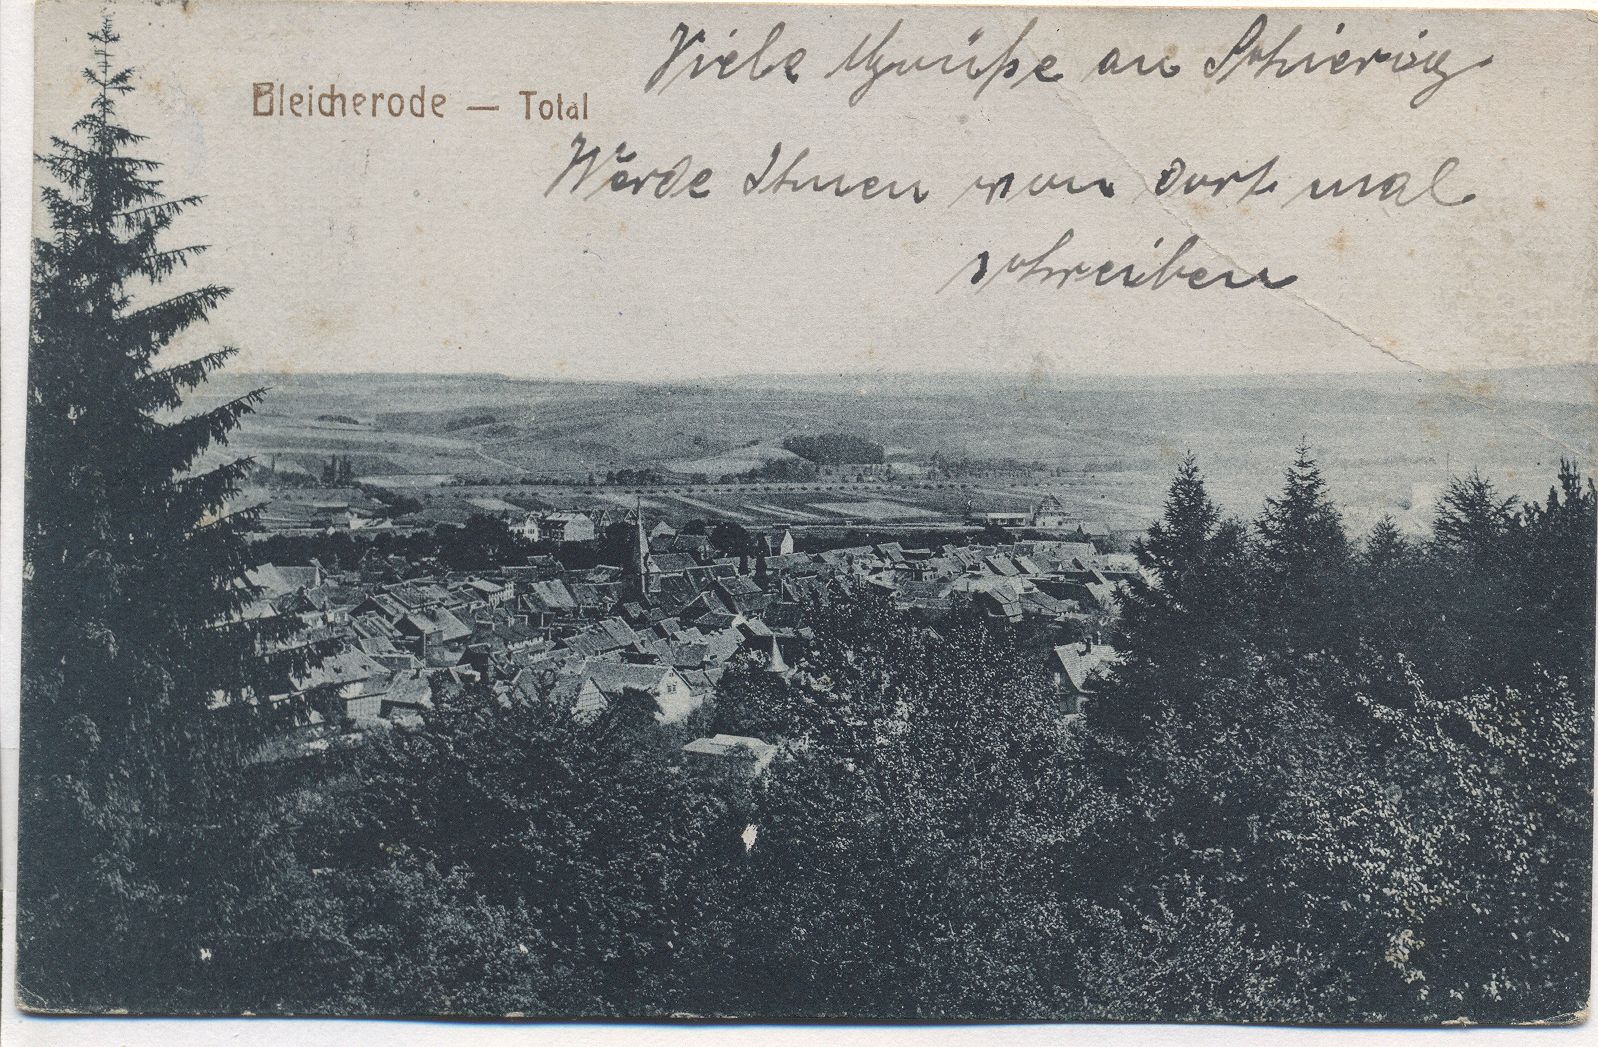 Bleicherode — Total
Viele Grüße an Schiering
Werde Ihnen von dort mal
schreiben